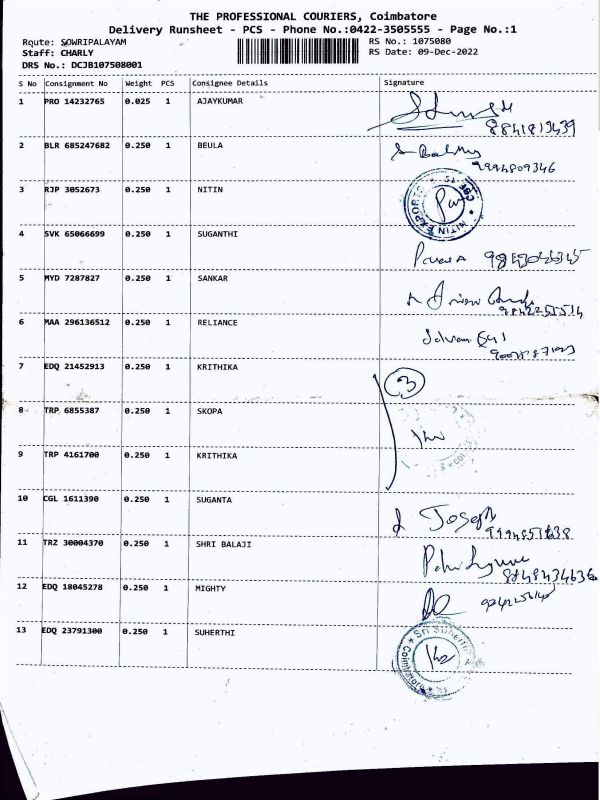 THE PROFESSIONAL COURIERS, Coimbatore
Delivery Runsheet - PCS - Phone No.:0422-3505555 - Page No.:1
Route: SOWRIPALAYAM RS No.: 1075080
Staff: CHARLY RS Date: 09-Dec-2022
DRS No.: DCJB107508001
S No Consignment No Weight PCS Consignee Details Signature
1 PRO 14232765 0.025 1 AJAYKUMAR
2 BLR 685247682 0.250 1 BEULA
9994809346
3 RJP 3052673 0.250 1 NITIN
NITIN EXPORTS
4 SVK 65066699 0.250 1 SUGANTHI
5 MYD 7287827 0.250 1 SANKAR
6 MAA 296136512 0.250 1 RELIANCE
7 EDQ 21452913 0.250 1 KRITHIKA
3
8 TRP 6855387 0.250 1 SKOPA
9 TRP 4161700 0.250 1 KRITHIKA
10 CGL 1611390 0.250 1 SUGANTA
Joseph
11 TRZ 30004370 0.250 1 SHRI BALAJI
12 EDQ 18045278 0.250 1 MIGHTY
13 EDQ 23791300 0.250 1 SUHERTHI
Coimbatore